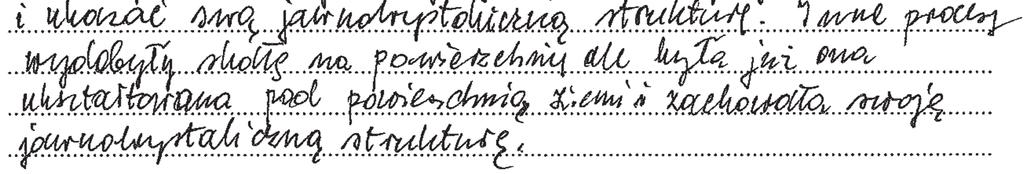 i ukazać swą jawnokrystaliczną strukturę. Inne procesy
wydobyły skałę na powierzchnię ale była już ona
ukształtowana pod powierzchnią ziemi i zachowała swoją
jawnokrystaliczną strukturę.